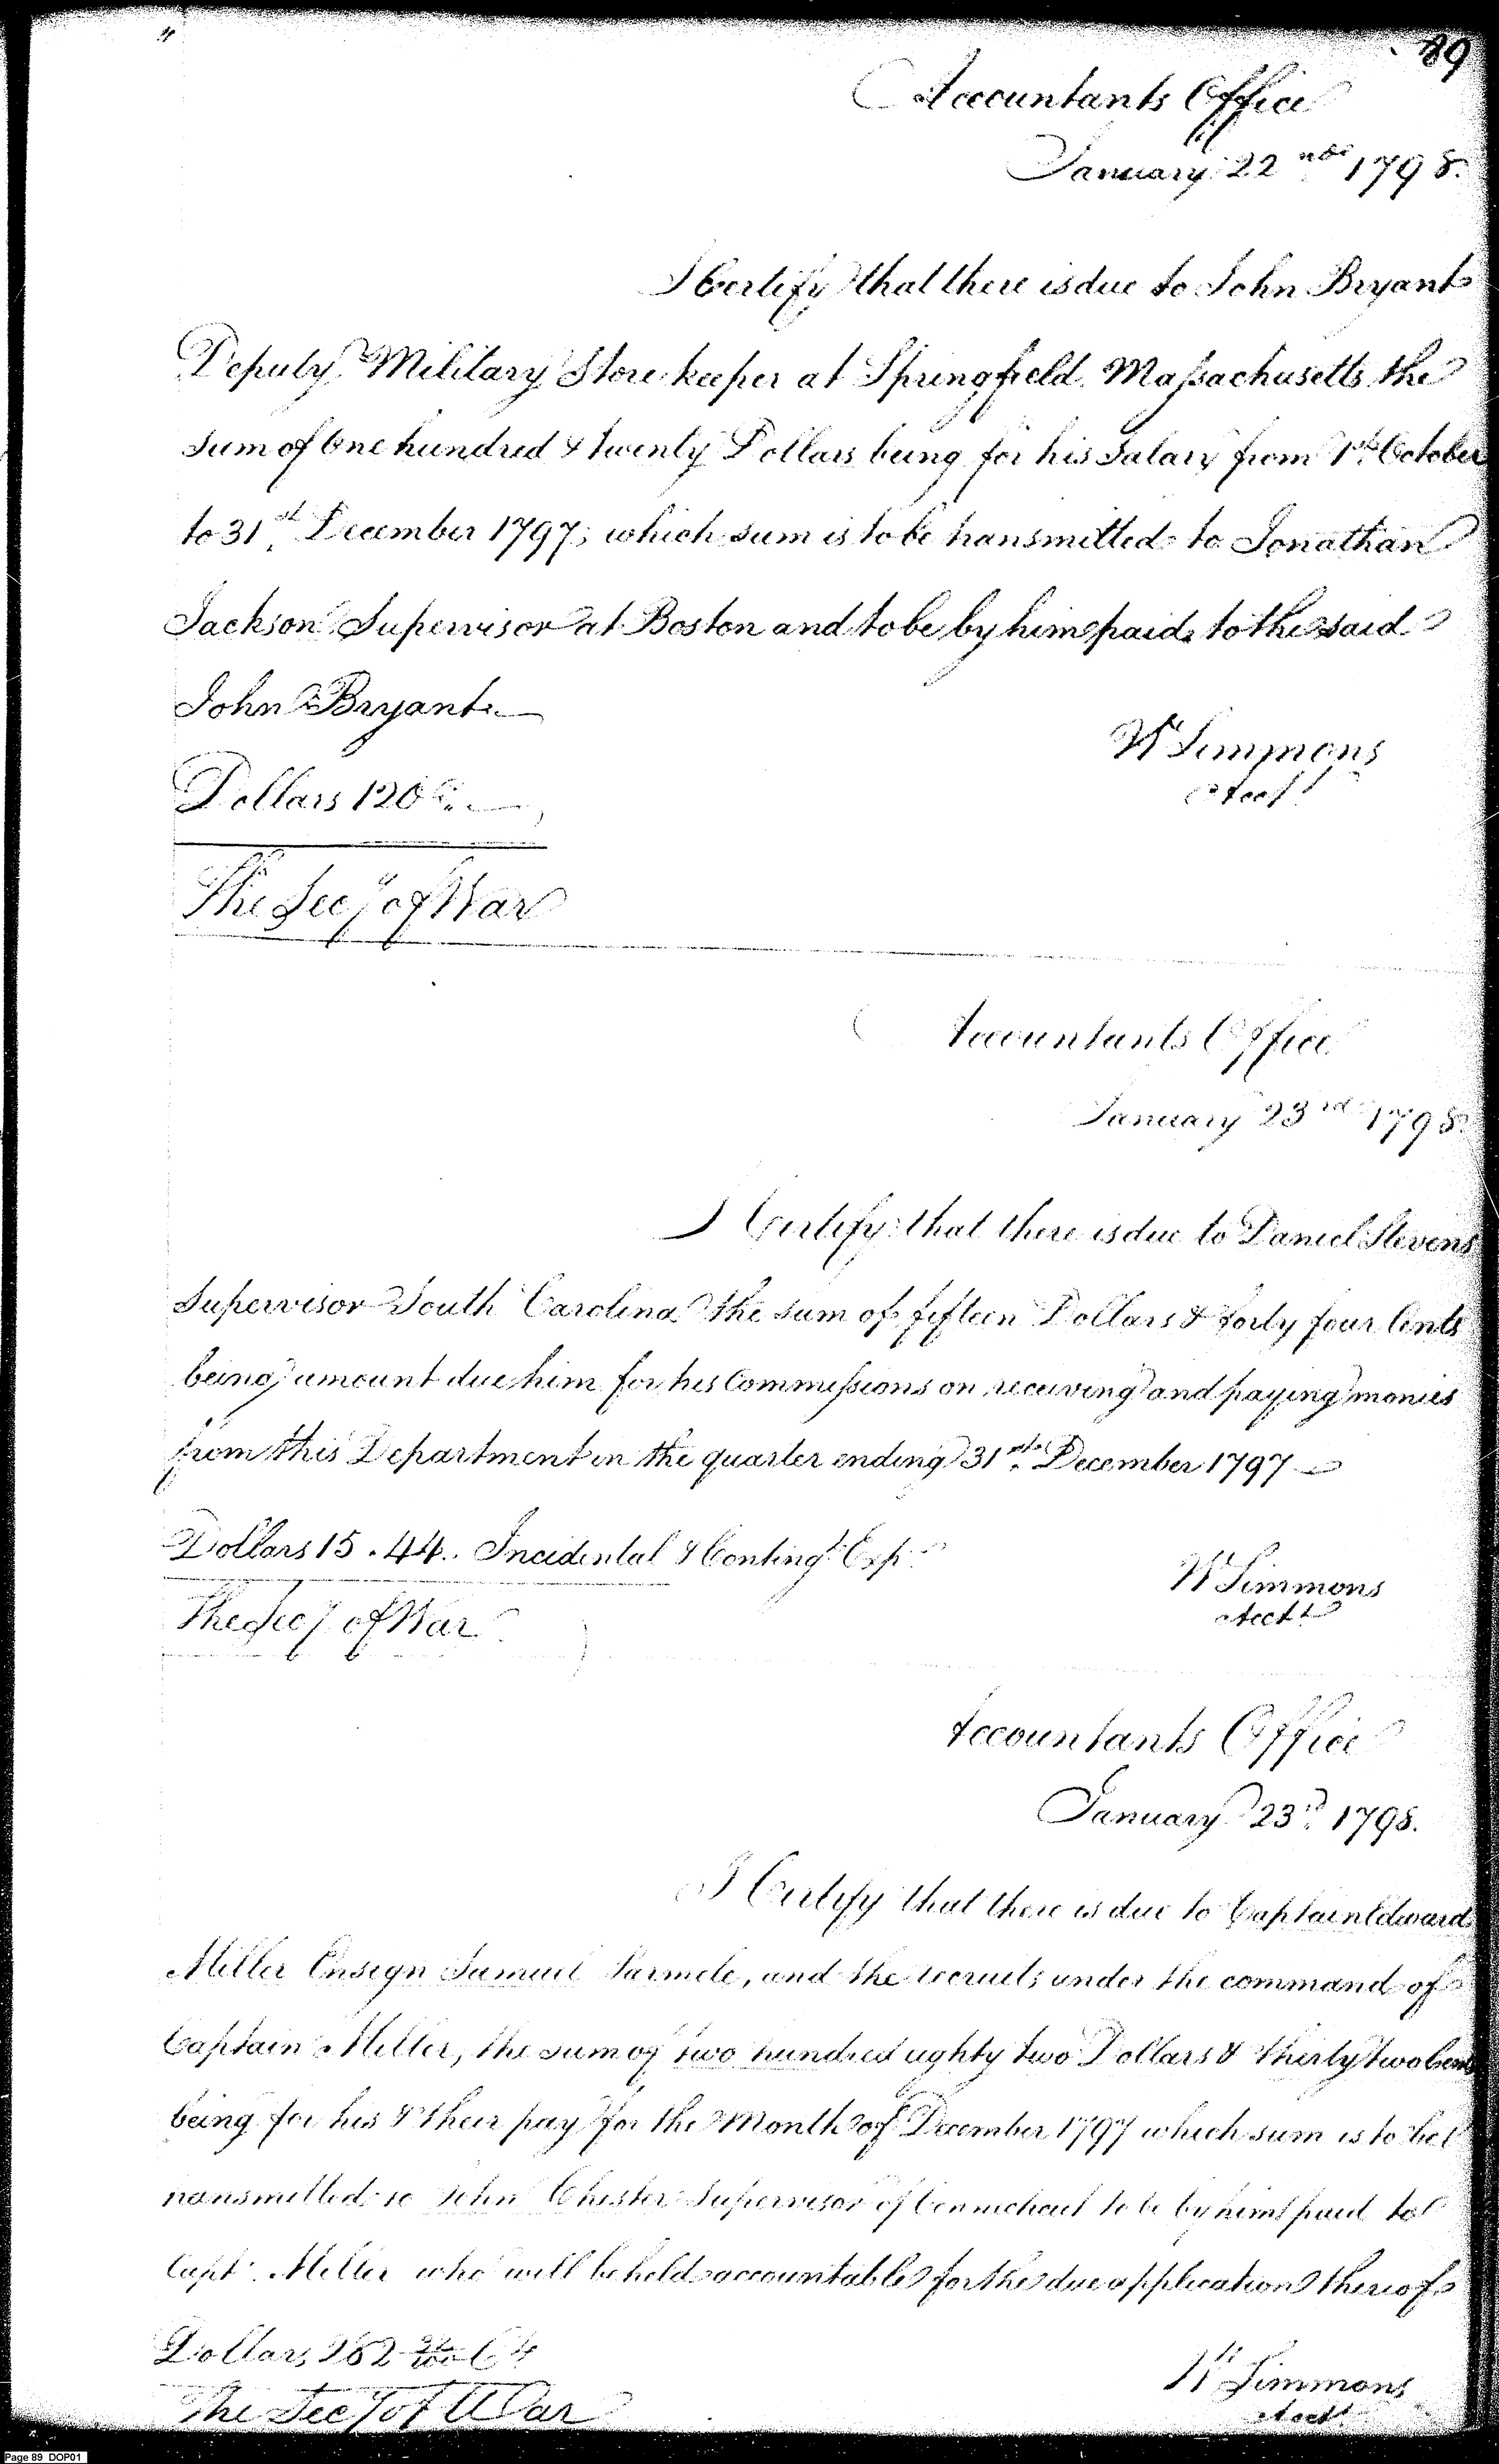 89
Accountants Office
January 22nd 1798.
I Certify that there is due to John Bryant
Deputy Military Storekeeper at Springfield Massachusetts the
sum of One hundred & twenty Dollars being for his Salary from 1st October
to 31st December 1797; which sum is to be transmitted to Jonathan
Jackson Supervisor at Boston and to be by him paid to the said
John Bryant
W Simmons
Acct
Dollars 120
The Secy of War
Accountants Office
January 23rd 1798
I Certify that there is due to Daniel Stevens
Supervisor South Carolina the sum of fifteen Dollars & forty four Cents
being amount due him for his Commissions on receiving and paying monies
from this Department in the quarter ending 31st December 1797
Dollars 15.44. Incidental & Contingt Exp
W Simmons
Acctt
The Secy of War
Accountants Office
January 23d 1798.
I Certify that there is due to Captain Edward
Miller Ensign Samuel Parmele, and the recruits under the command of
Captain Miller, the sum of two hundred eighty two Dollars & thirty two Cents
being for his & their pay for the Month of December 1797 which sum is to be
transmitted to John Chester Supervisor of Connecticut to be by him paid to
Capt. Miller who will be held accountable for the due application thereof
Dollars 282 32/100
W Simmons
Acctt
The Secy of War
Page 89 DOP01